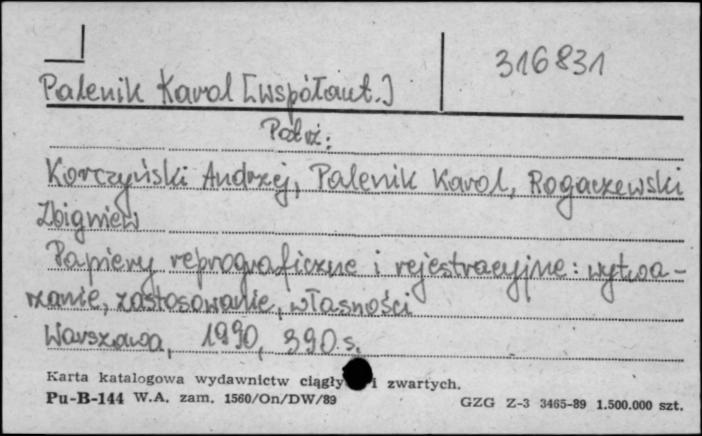 316831
Palenik Karol [współaut.]
Patrz:
Korczyński Andrzej, Palenik Karol, Rogaczewski
Zbigniew
Papiery reprograficzne i rejestracyjne: wytwa-
rzanie, zastosowanie, własności
Warszawa, 1990, 390 s.
Karta katalogowa wydawnictw ciągły i zwartych.
Pu-B-144 W.A. zam. 1560/On/DW/89 GZG Z-3 3465-89 1.500.000 szt.